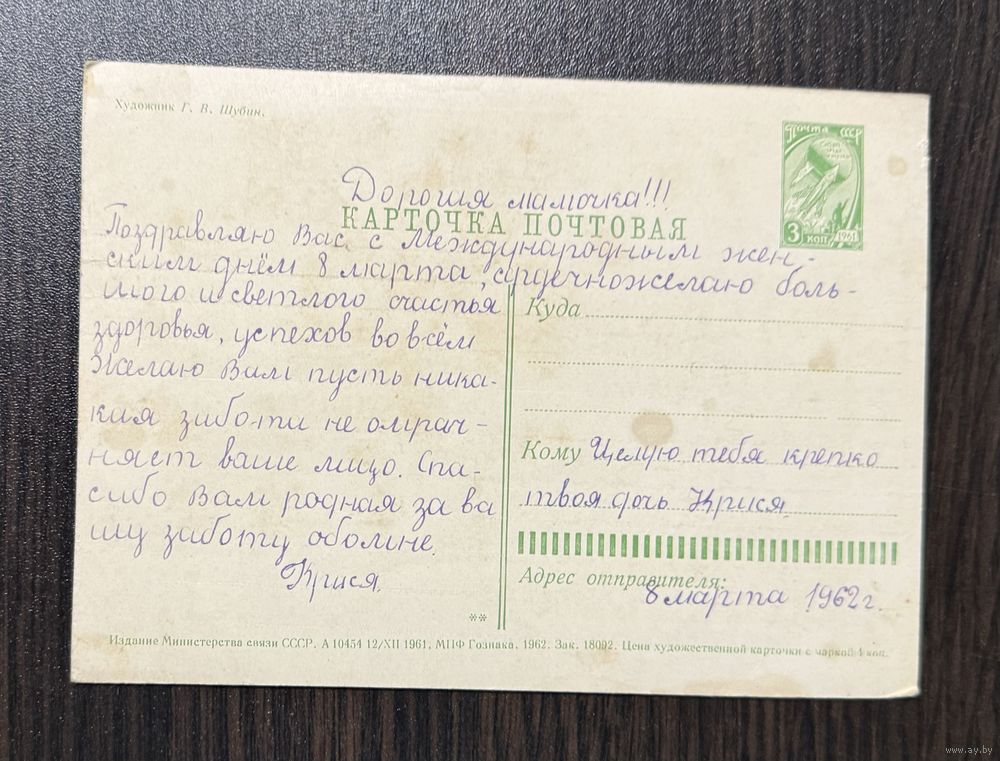 Художник Г. В. Шубин.
Почта СССР
3 коп
1961
Дорогия мамочка!!!
КАРТОЧКА ПОЧТОВАЯ
Поздравляю Вас с Международным жен-
ским днём 8 марта, сердечножелаю боль-
шого и светлого счастья
здоровья, успехов во всём
желаю Вам пусть ника-
кая забота не омрач-
няет ваше лицо. Спа-
сибо Вам родная за ва
шу заботу обомне.
Крися.
Куда
Кому Целую тебя крепко
твоя дочь Крися
Адрес отправителя:
8 марта 1962 г.
**
Издание Министерства связи СССР. А 10454 12/XII 1961. МПФ Гознака. 1962. Зак. 18092. Цена художественной карточки с маркой 4 коп.
www.ay.by